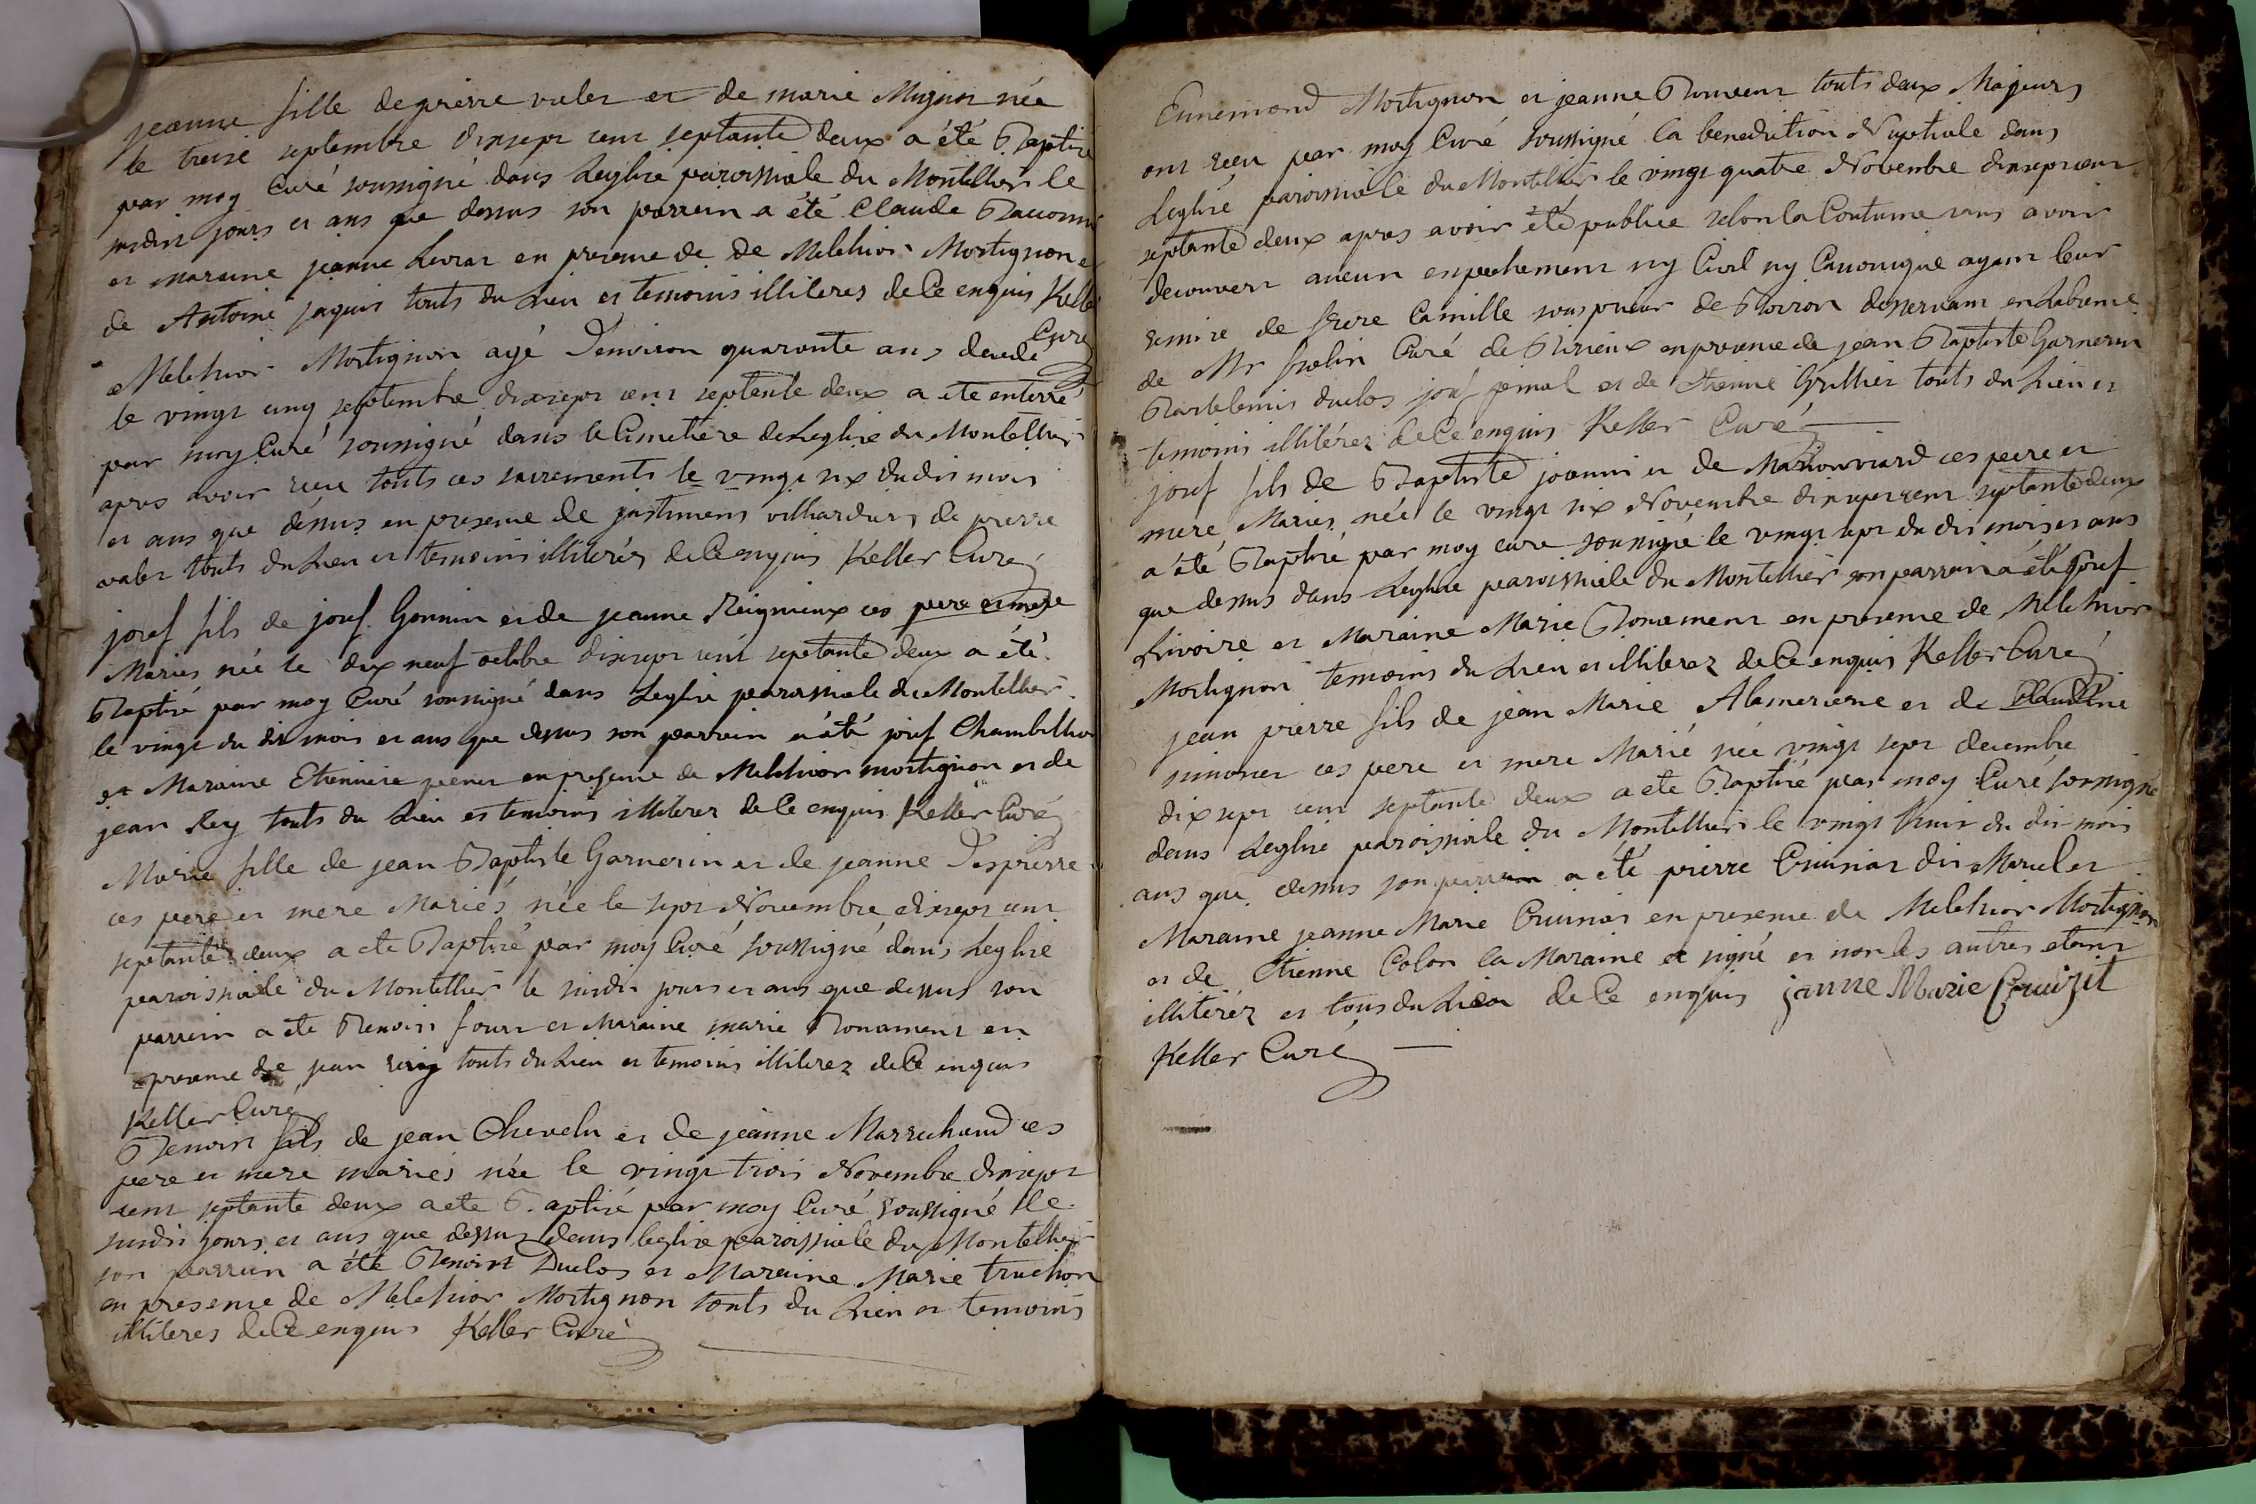 jeanne fille de pierre valet et de marie Mignot née
le treise septembre dixsept cent septante deux a été Baptise
par moy Curé soussigné dans Leglise paroissiale du Montellier le
susdit jours et ans que dessus son parrein a été Claude
et maraine jeanne Livrat en presence de de Melchior Mortignon e
de Antoine jaquis touts du Lieu et temoins illiteres de Ce enquis Keller
Curé
Melchior Mortignon agé Denviron quarante ans decedé
le vingt cinq septembre dixsept cent septente deux a été enterré
par moy Curé soussigné dans le Cimetiere de Leglise du Montellier
apres avoir recu touts ces sacrements le vingt six du dit mois
et ans que dessus en presence de villiardurs de pierre
valet touts du Lieu et temoins illiterés de Ce enquis Keller Curé
josef fils de josef Gonnin et de jeanne Reignieux ces pere et mere
Mariés née le dix neuf octobre dixsept cent septante deux a été
Baptisé par moy Curé soussigné dans Leglise paroissiale du Montellier
le vingt du dit mois et ans que dessus son parrein a été josef Chambellion
et Maraine Etiennise penet en presence de Melchior mortignon et de
jean Rey touts du Lieu et temoins illiterez de Ce enquis Keller Curé
Marie fille de jean Baptiste Garnerin et de jeanne Despierre
ces pere et mere Mariés née le sept Novembre dixsept cent
septante deux a eté Baptisé par moy Curé soussigné dans Leglise
paroissiale du Montellier le susdit jours et ans que dessus son
parrein a eté Benoist four et Maraine marie Bonament en
presence de jean touts du Lieu et temoins illiterez de Ce enquis
Keller Curé
Benoist fils de jean Chevelu et de jeanne Marechand ces
pere et mere mariés née le vingt trois Novembre dixsept
cent septante deux a eté Baptisé par moy Curé soussigné le
susdit jours et ans que dessus dans leglise paroissiale du Montellier
son parrein a été Benoist Duclos et Maraine Marie truchon
en presence de Melchior Mortignon touts du Lieu et temoins
illiteres de Ce enquis Keller Curé
Ennemond Mortignon et jeanne touts deux Majeurs
ont recu par moy Curé soussigné la benediction Nuptiale dans
Leglise paroissiale du Montellier le vingt quatre Novembre dixsept cent
septante deux apres avoir été publiee selon la Coutume sans avoir
decouvert aucun enpechement ny Civil ny Canonique ayant leur
remise de frere Camille sousprieur de desservant en Labsence
de Mr Curé de Birieux en presence de jean Baptiste Garnerin
Bartelemis duclos josef et de Etienne Grillier touts du Lieu et
temoins illitérez de Ce enquis Keller Curé
josef fils de Baptiste joannin et de Marion viard ces pere et
mere Mariés née le vingt six Novembre dixsept cent septante deux
a été Baptisé par moy cure soussigné le vingt sept du dit mois et ans
que dessus dans Leglise paroissiale du Montellier son parrein a été josef
Livoire et Maraine Marie Bonement en presence de Melchior
Mortignon temoins du Lieu et illiterez de Ce enquis Keller Curé
jean pierre fils de jean Marie Alamercerie et de Claudine
simonet ces pere et mere Marié née vingt sept decembre
dix sept cent septante deux a ete Baptisé par moy Curé soussigné
dans Leglise paroissiale du Montellier le vingt huit du dit mois
ans que dessus son parrein a été pierre Cruisiat dit Marul et
Maraine jeanne Marie Cruisiat en presence de Melchior Mortignon
et de Etienne Colon la Maraine a signé et non les autres etant
illitérez et tous du Lieu de Ce enquis janne Marie Cruizit
Keller Curé